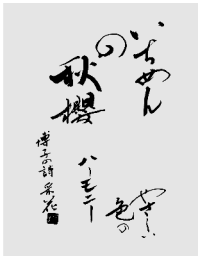 いちめん
の
秋櫻
やさしい
色の
ハーモニー
博子の詩 采花